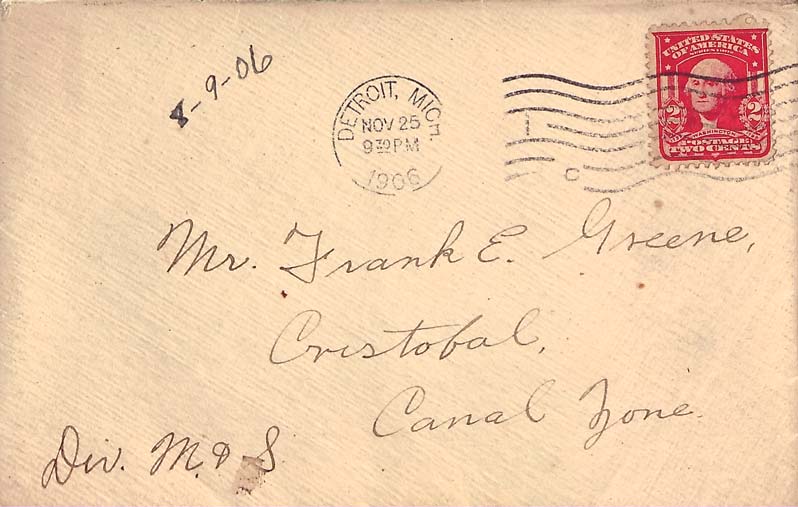 8-9-06
DETROIT, MICH.
NOV 25
9 30 PM
1906
1
C
UNITED STATES
OF AMERICA
SERIES 1902
2 2
WASHINGTON
POSTAGE
TWO CENTS
Mr. Frank E. Greene,
Cristobal,
Canal Zone.
Div. M. & S